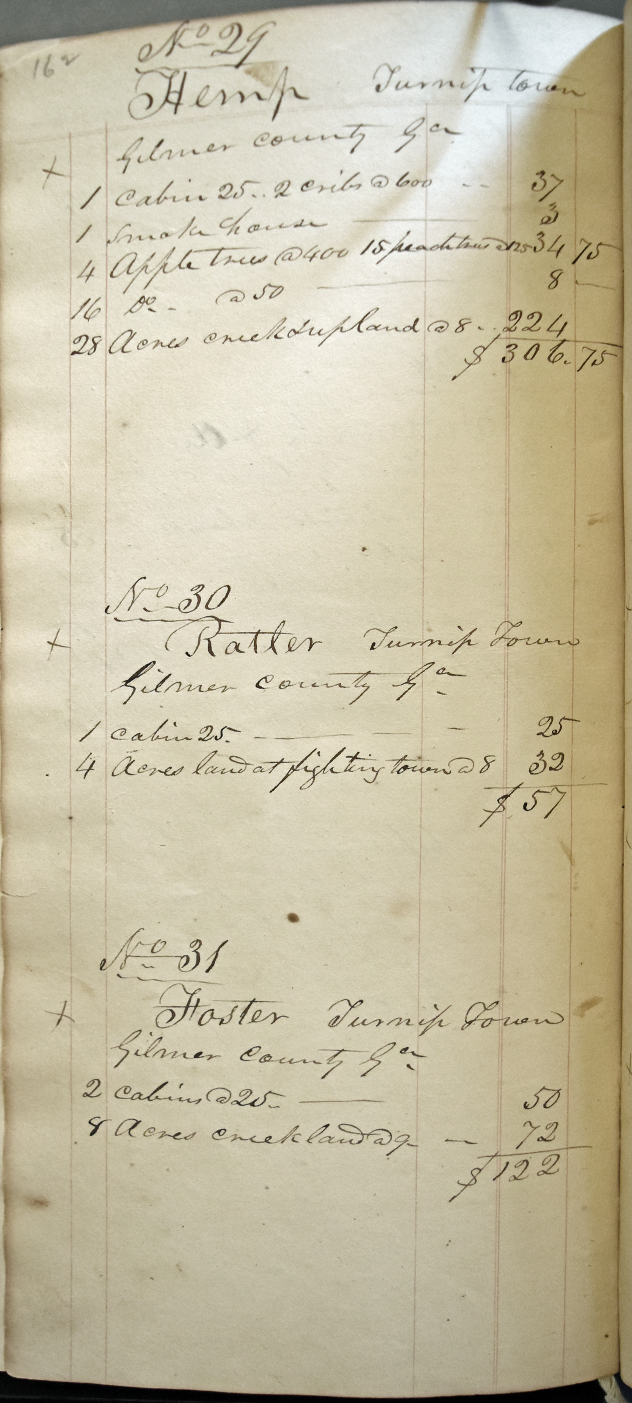 162
No 29
Hemp Turnip town
Gilmer county Ga
1 Cabin 25.. 2 cribs @ 600 -- 37
1 Smoke house 3
4 Apple trees @ 400 15 peach trees @ 125 34 75
16 Do - @ 50 8 —
28 Acres creek & upland @ 8 - 224
$ 306.75
No 30
Ratler Turnip Town
Gilmer county Ga
1 cabin 25. — 25
4 Acres land at fighting town @ 8 32
$ 57
No 31
Foster Turnip Town
Gilmer county Ga
2 cabins @ 25- — 50
8 Acres creek land @ 9 - — 72
$ 122